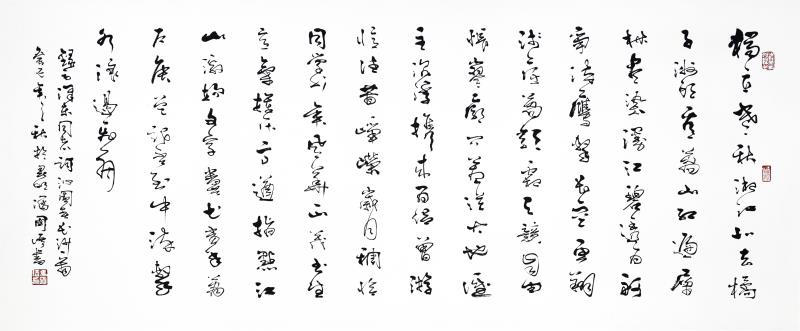 獨立寒秋湘江北去橘
子洲頭看萬山紅遍層
林盡染漫江碧透百舸
爭流鷹擊長空魚翔
淺底萬類霜天競自由
悵寥廓問蒼茫大地誰
主沉浮攜來百侶曾游
憶往昔崢嶸歲月稠恰
同學少年風華正茂書生
意氣揮斥方遒指點江
山激揚文字糞土當年萬
戶侯曾記否到中流擊
水浪遏飛舟
錄毛澤東同志詞沁園春長沙一
癸巳之秋於國書